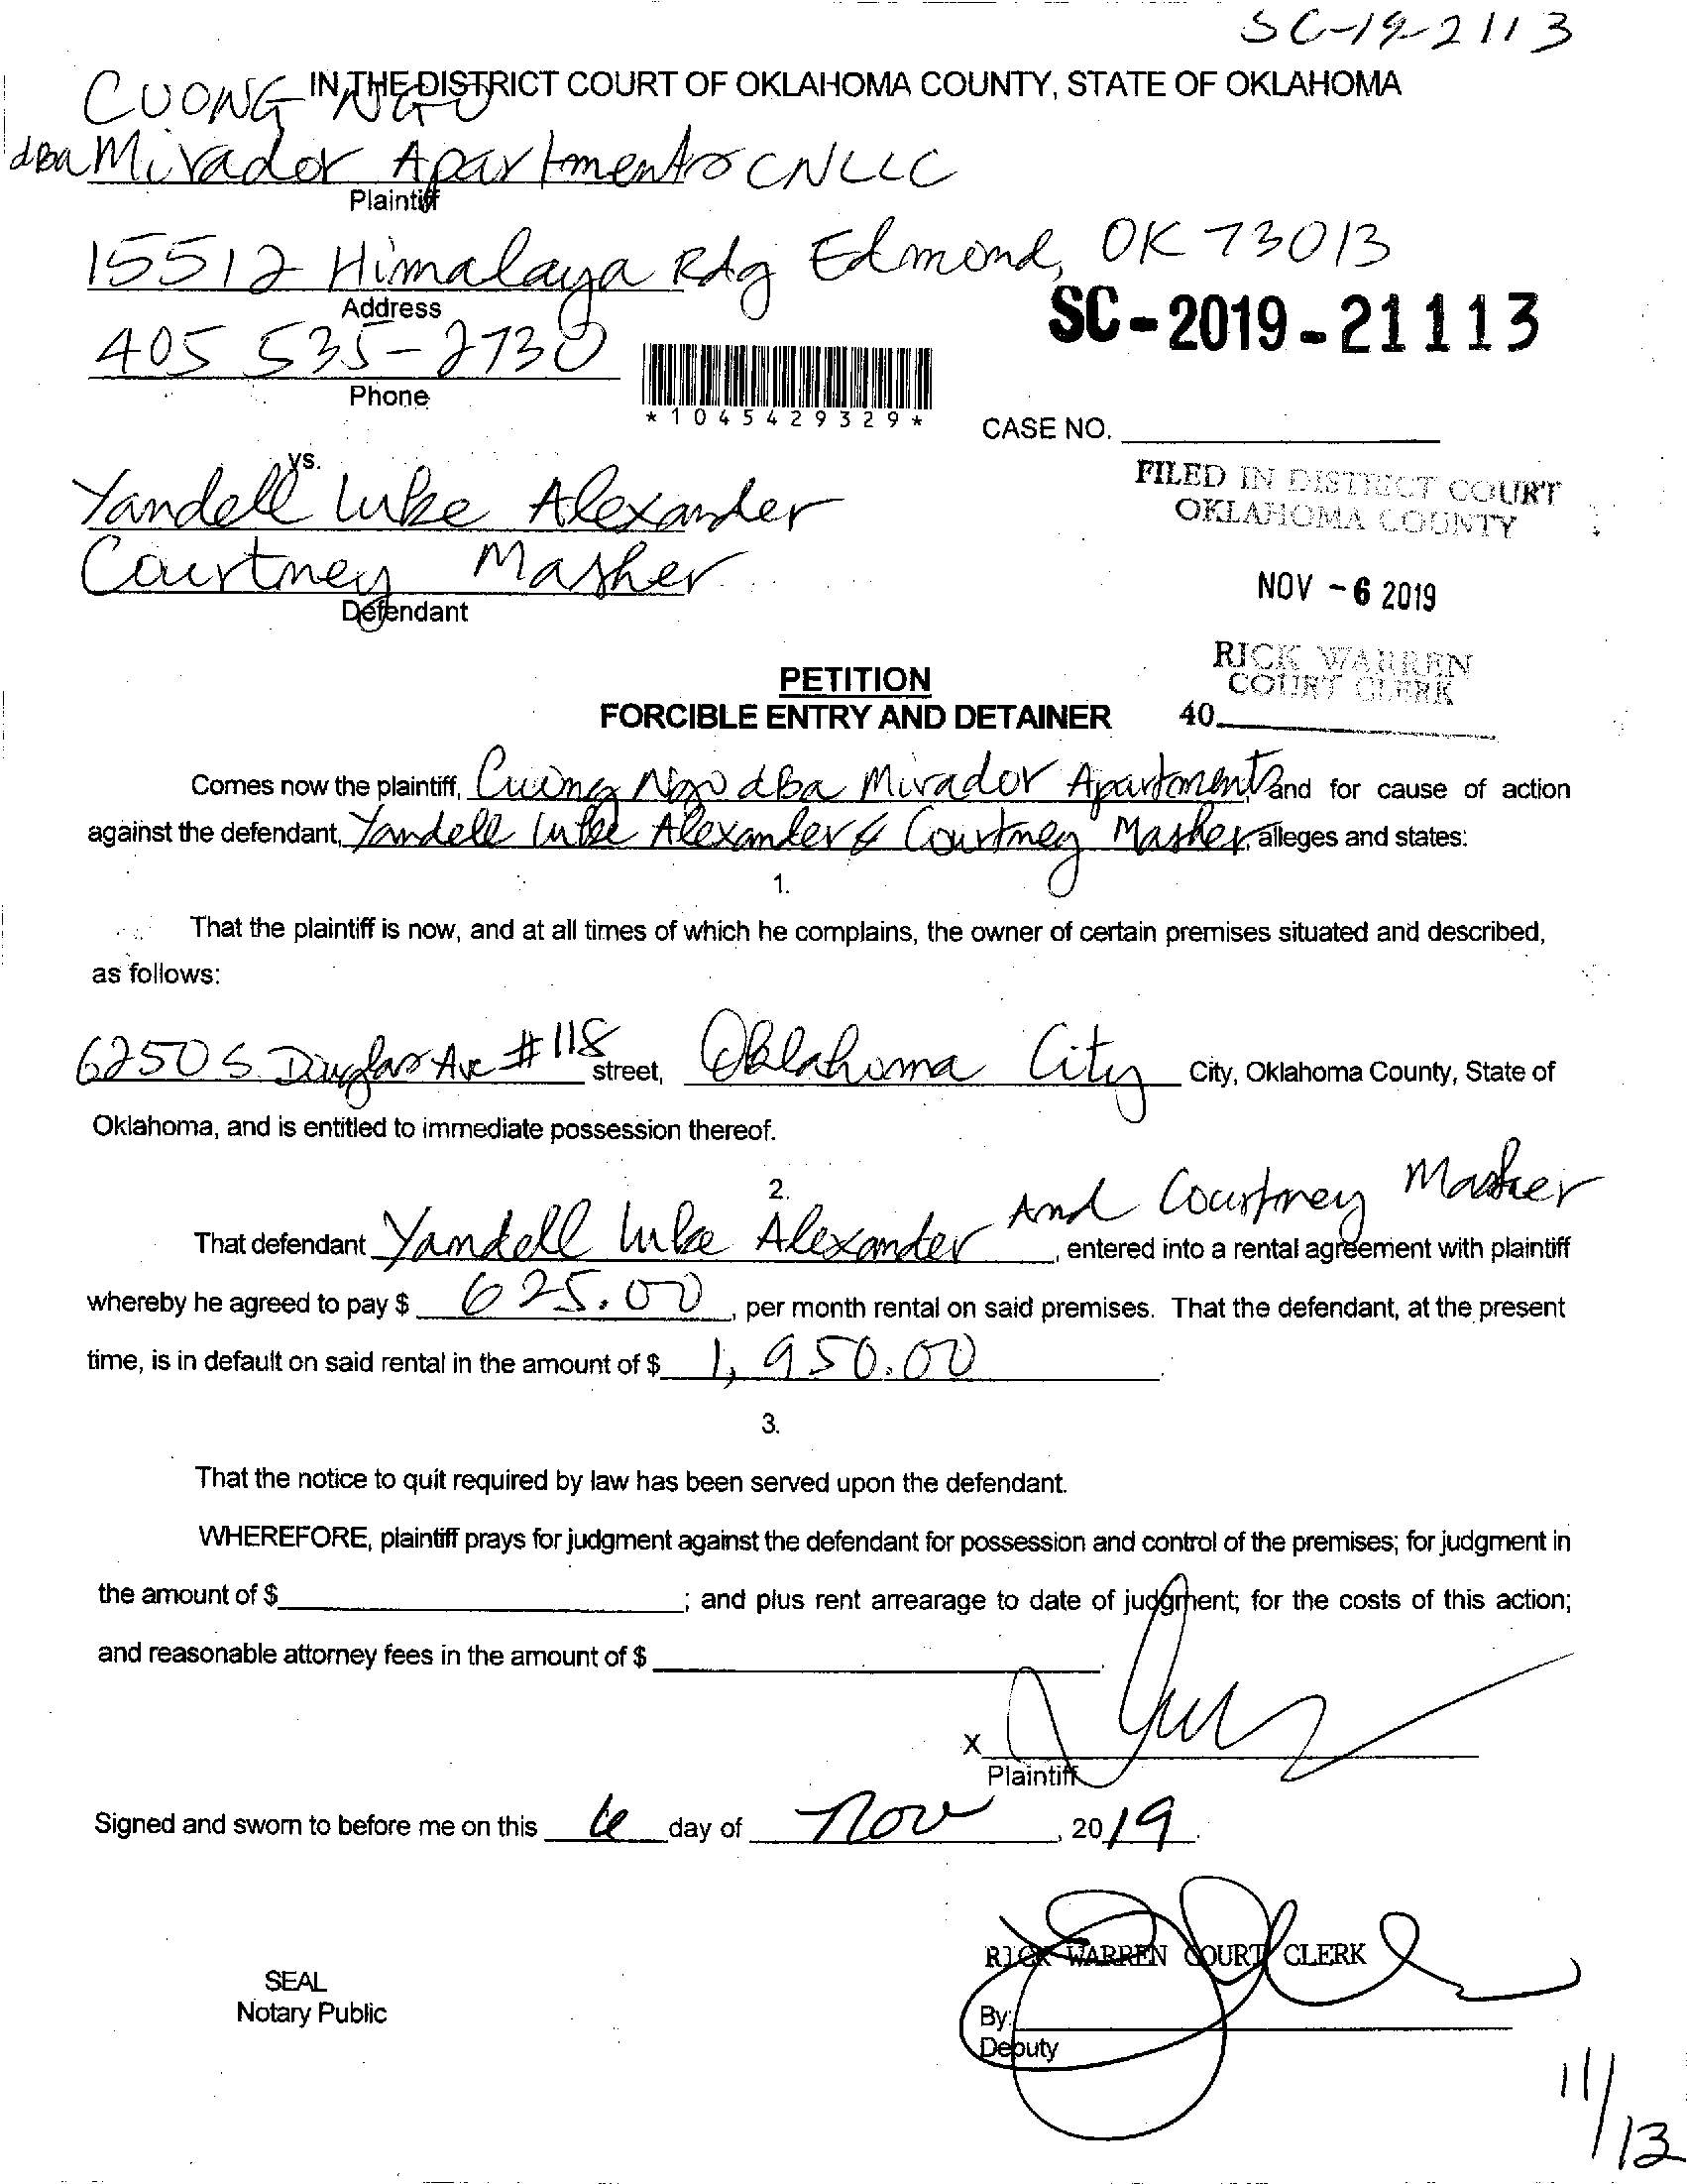 SC-19-2113
IN THE DISTRICT COURT OF OKLAHOMA COUNTY, STATE OF OKLAHOMA
CUONG NGO
dba Mirador Apartments CNLLC
Plaintiff
15512 Himalaya Rdg Edmond, OK 73013
Address
SC-2019-21113
405 535-2730
Phone
*1045429329*
CASE NO.
vs.
Yandell Luke Alexander
Courtney Masher
Defendant
FILED IN DISTRICT COURT
OKLAHOMA COUNTY
NOV -6 2019
RICK WARREN
COURT CLERK
40
PETITION
FORCIBLE ENTRY AND DETAINER
Comes now the plaintiff, Cuong Ngo dba Mirador Apartment and for cause of action
against the defendant, Yandell Luke Alexander & Courtney Masher, alleges and states:
1.
That the plaintiff is now, and at all times of which he complains, the owner of certain premises situated and described,
as follows:
6250 S. Douglas Ave #118 street, Oklahoma City City, Oklahoma County, State of
Oklahoma, and is entitled to immediate possession thereof.
2.
That defendant Yandell Luke Alexander And Courtney Masher, entered into a rental agreement with plaintiff
whereby he agreed to pay $ 625.00, per month rental on said premises. That the defendant, at the present
time, is in default on said rental in the amount of $ 1,950.00.
3.
That the notice to quit required by law has been served upon the defendant.
WHEREFORE, plaintiff prays for judgment against the defendant for possession and control of the premises; for judgment in
the amount of $ ; and plus rent arrearage to date of judgment; for the costs of this action;
and reasonable attorney fees in the amount of $ .
X
Plaintiff
Signed and sworn to before me on this 6 day of Nov, 2019.
RICK WARREN COURT CLERK
SEAL
Notary Public
By:
Deputy
11/13